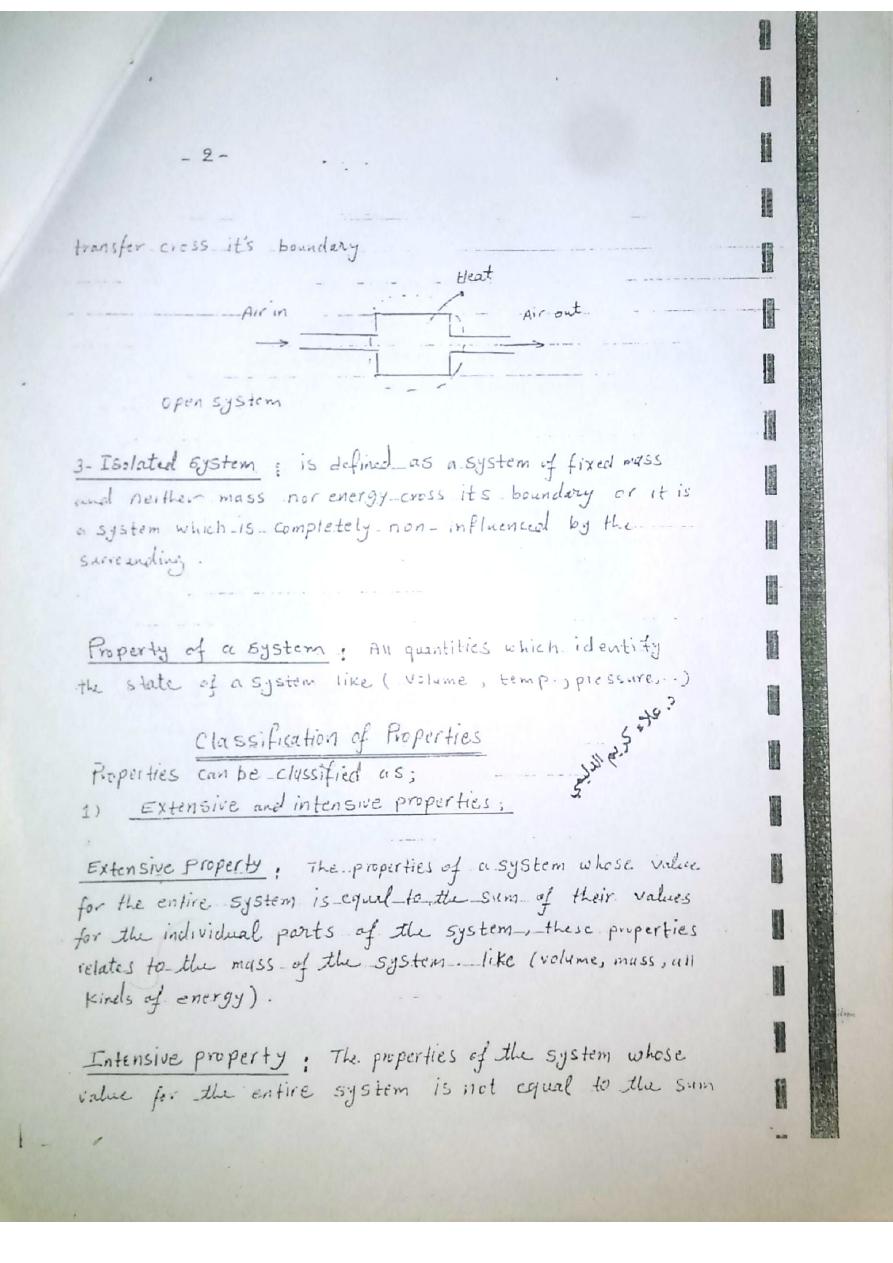 - 2 -
transfer cross it's boundary
Heat
Air in
Air out
Open system
3- Isolated system : is defined as a system of fixed mass
and neither mass nor energy cross its boundary or it is
a system which is completely non-influenced by the
surrounding.
Property of a system : All quantities which identify
the state of a system like ( volume , temp., pressure, ..)
د. علاء كريم الدليمي
Classification of Properties
Properties can be classified as;
1) Extensive and intensive properties;
Extensive Property : The properties of a system whose value
for the entire system is equal to the sum of their values
for the individual parts of the system, these properties
relates to the mass of the system. like (volume, mass, all
kinds of energy).
Intensive property : The properties of the system whose
value for the entire system is not equal to the sum